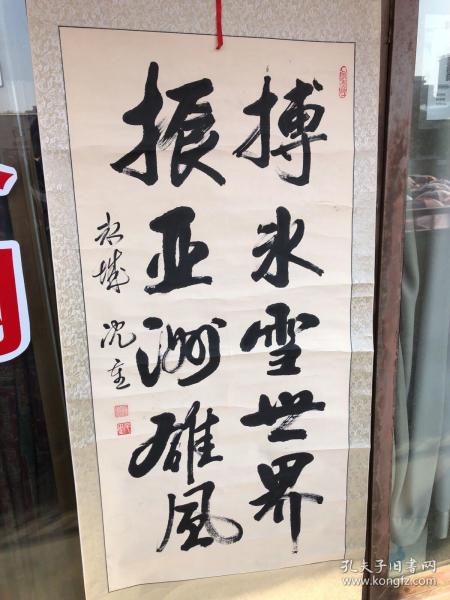 搏冰雪世界
振亚洲雄风
沈重
孔夫子旧书网
www.kongfz.com